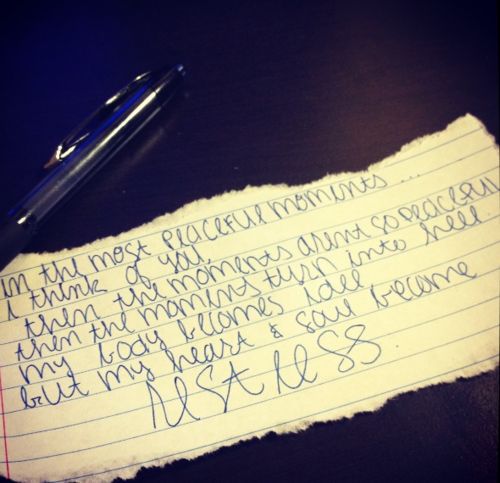 in the most peaceful moments ...
i think of you,
then the moments arent so peaceful
then the moment turn into hell.
my body becomes idle
but my heart & soul become
restless